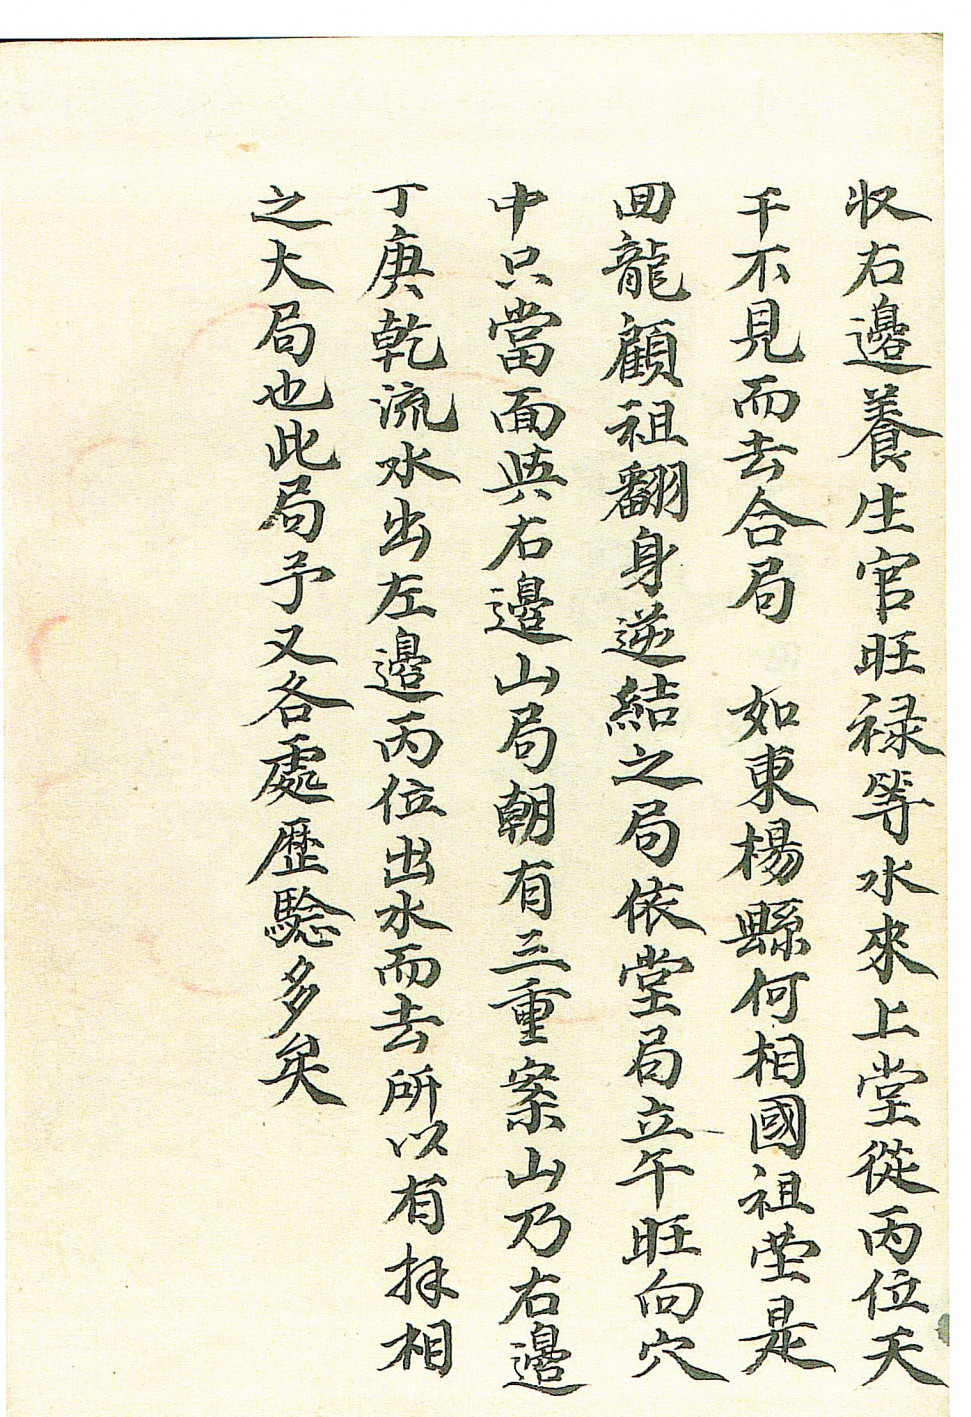 収右邊養生官旺禄等水來上堂從丙位天
干不見而去合局　如東楊縣何相國祖塋是
回龍顧祖翻身逆結之局依堂局立午旺向穴
中只當面與右邊山局朝有三重案山乃右邊
丁庚乾流水出左邊丙位出水而去所以有拜相
之大局也此局予又各處歷驗多矣